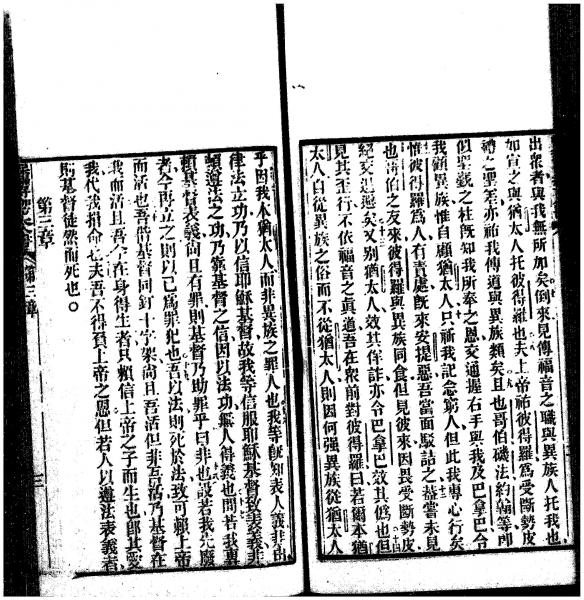 出衆者與我無所加矣倒來見傳福音之職與異族人托我也
如宣之與猶太人托彼得羅也夫上帝祐彼得羅爲受斷勢皮
禮之聖差亦祐我傳道與異族類矣且也哥伯磯法約翰等即
似聖戲之柱既知我所奉之恩交通握右手與我及巴拿巴令
我顧異族惟自顧猶太人只祈我記念窮人但此我專心行矣
惟彼得羅爲人有責處既來安提惡吾當面駁詰之蓋嘗未見
也濟伯之友來彼得羅與異族同食但見彼來因畏受斷勢皮
經交退遜矣又別猶太人效其侔詐亦令巴拿巴效其僞也但
見其歪行不依福音之眞道吾在衆前對彼得羅曰若爾本猶
太人自從異族之俗而不從猶太人則因何强異族從猶太人
乎因我本猶太人而非異族之罪人也我等既知表人義非由
律法立功乃以信耶穌基督故我等信服耶穌基督致表義非
賴遵法之功乃靠基督之信因以法功無人得義也間若我專
賴基督表義尚且有罪則基督乃助罪乎曰非也設若我先廢
者今再立之則以己爲罪犯也吾以法則死於法致可賴上帝
而活也吾偕基督同釘十字架尚且吾活但非吾活乃基督在
我而活也且吾今在身得生者只賴信上帝之子而生也即其愛
我代我捐命也夫吾不得負上帝之恩但若人以遵法表義者
則基督徒然而死也○
第三章
第三章
三